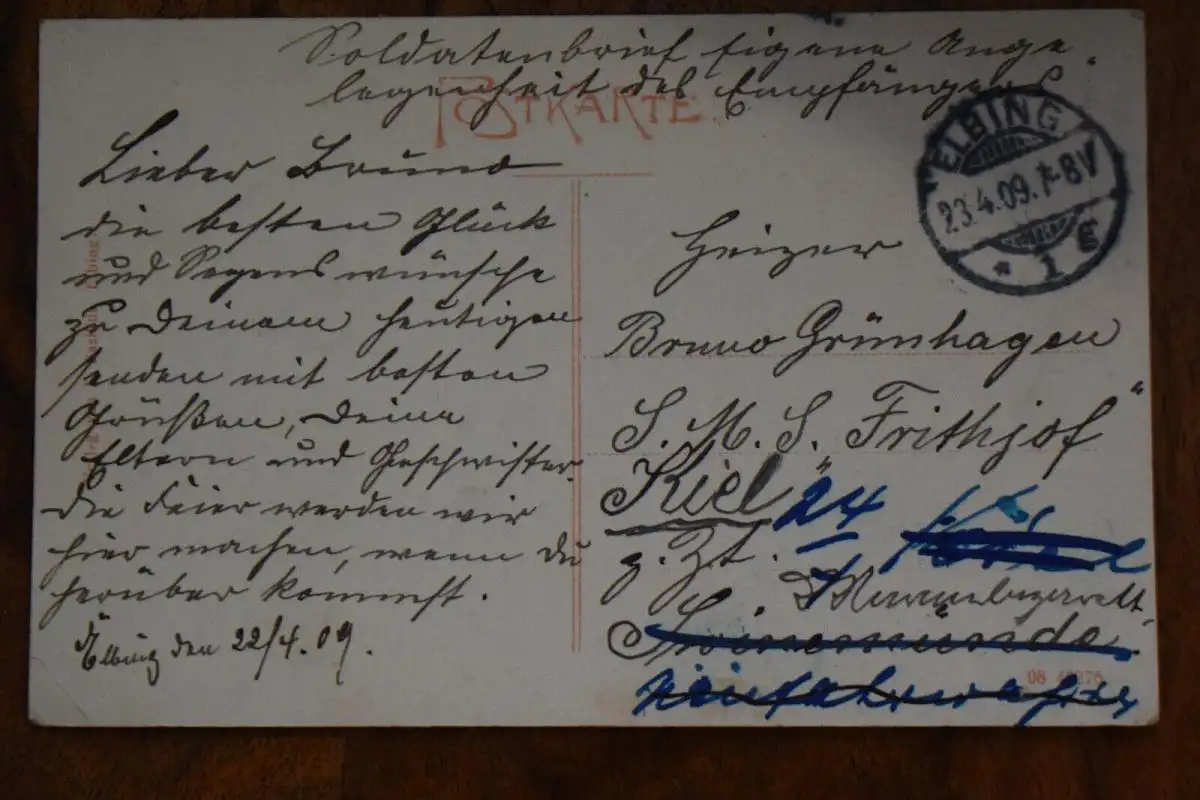 Soldatenbrief Eigene Ange-
legenheit des Empfängers"
POSTKARTE
ELBING
23.4.09. 7-8V
* 1 E
Lieber Bruno
die besten Glück
und Segenswünsche
zu Deinem heutigen
senden mit besten
Grüßen, Deine
Eltern und Geschwister.
Die Feier werden wir
hier machen, wenn Du
herüber kommst.
Elbing den 22/4.09.
Heizer
Bruno Grünhagen
S. M. S. Frithjof"
Kiel
24
z. Zt.
Swinemünde
Neufahrwasser
08